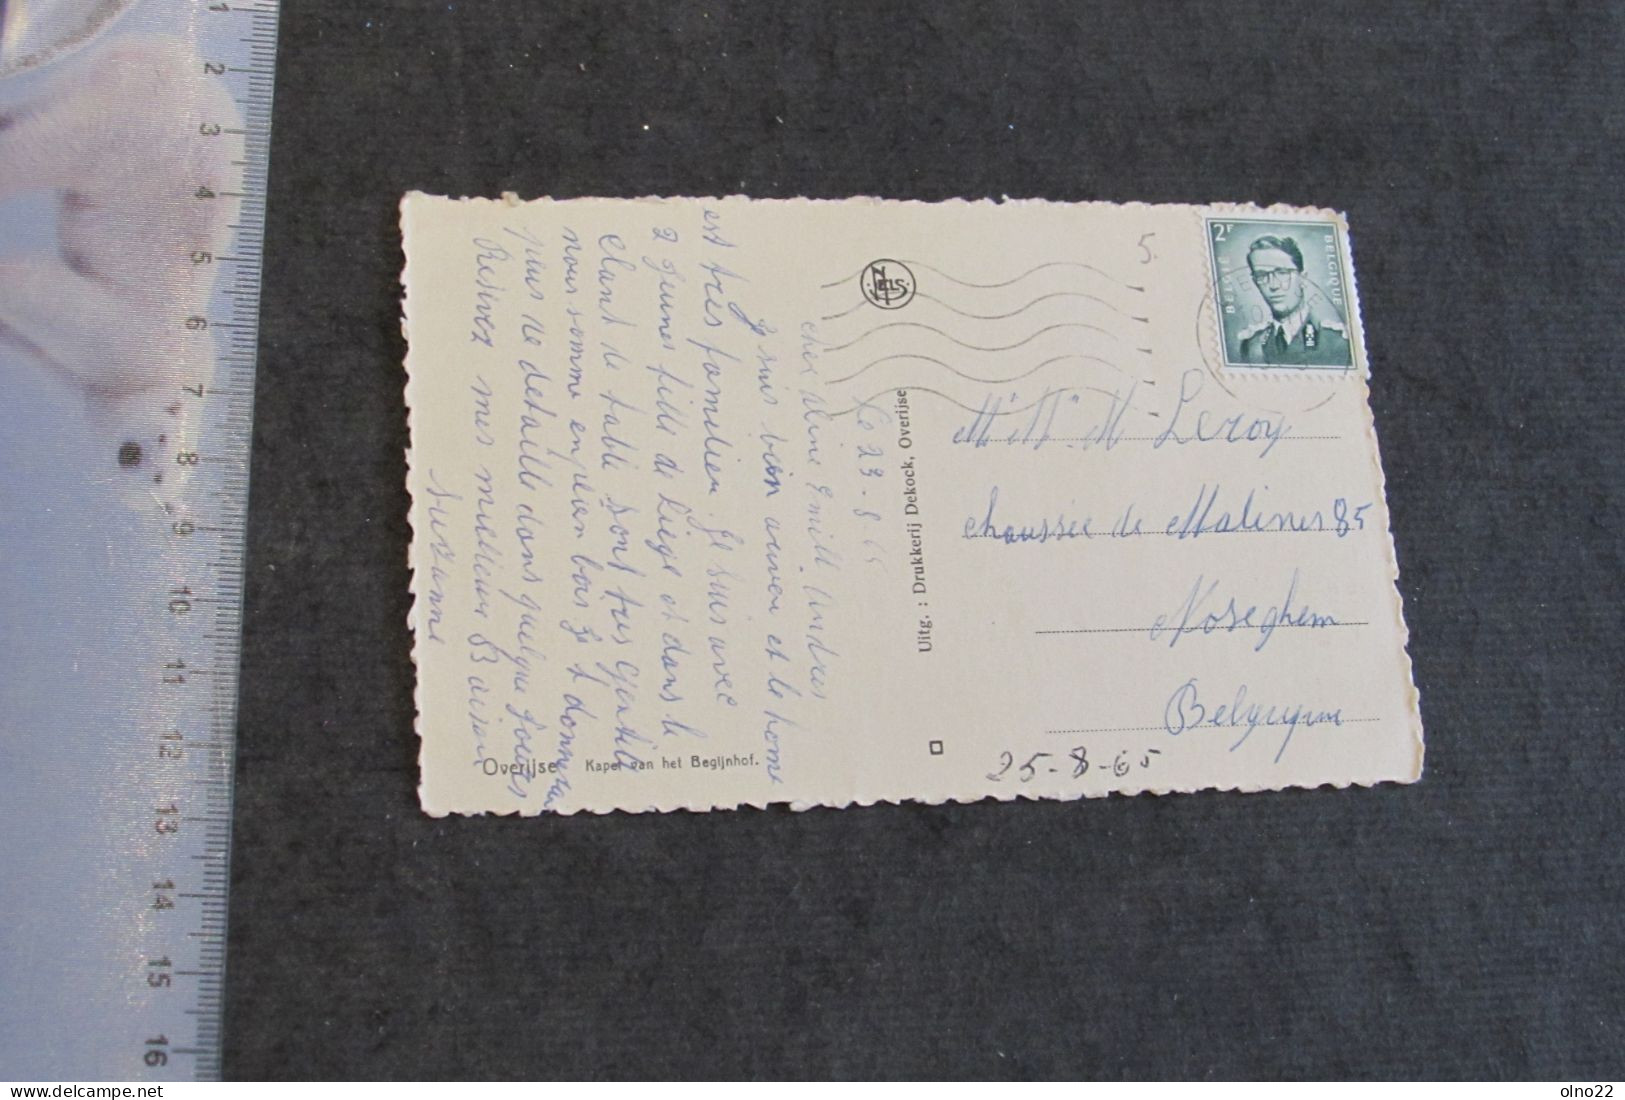 Le 23-8-65
cher Aline Emill Andrée
Je suis bien arriven et le home
est très familier. Je suis avec
2 Jeunes fille de Liege et dans le
de table sont très Gentill
nous somme en plein bois Je t donnerai
plus de detaille dans quelque Jours
Resivez mes meilleur Baiser
Suzanne
Overijse Kapel van het Begijnhof.
NELS
Uitg. : Drukkerij Dekock, Overijse
5.
2F
BELGIË
BELGIQUE
Leroy
chaussée de Malines 85
Noseghem
Belgique
25-8-65
1
2
3
4
5
6
7
8
9
10
11
12
13
14
15
16
olno22